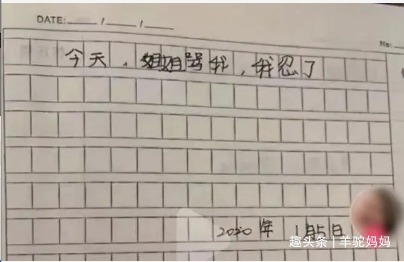 DATE: / /
No:
今天，姐姐骂我，我忍了
2020年 1月5日
趣头条 | 羊驼妈妈